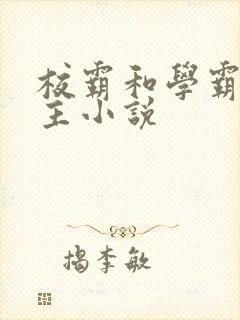 校霸和學霸
主小說
揭李敏